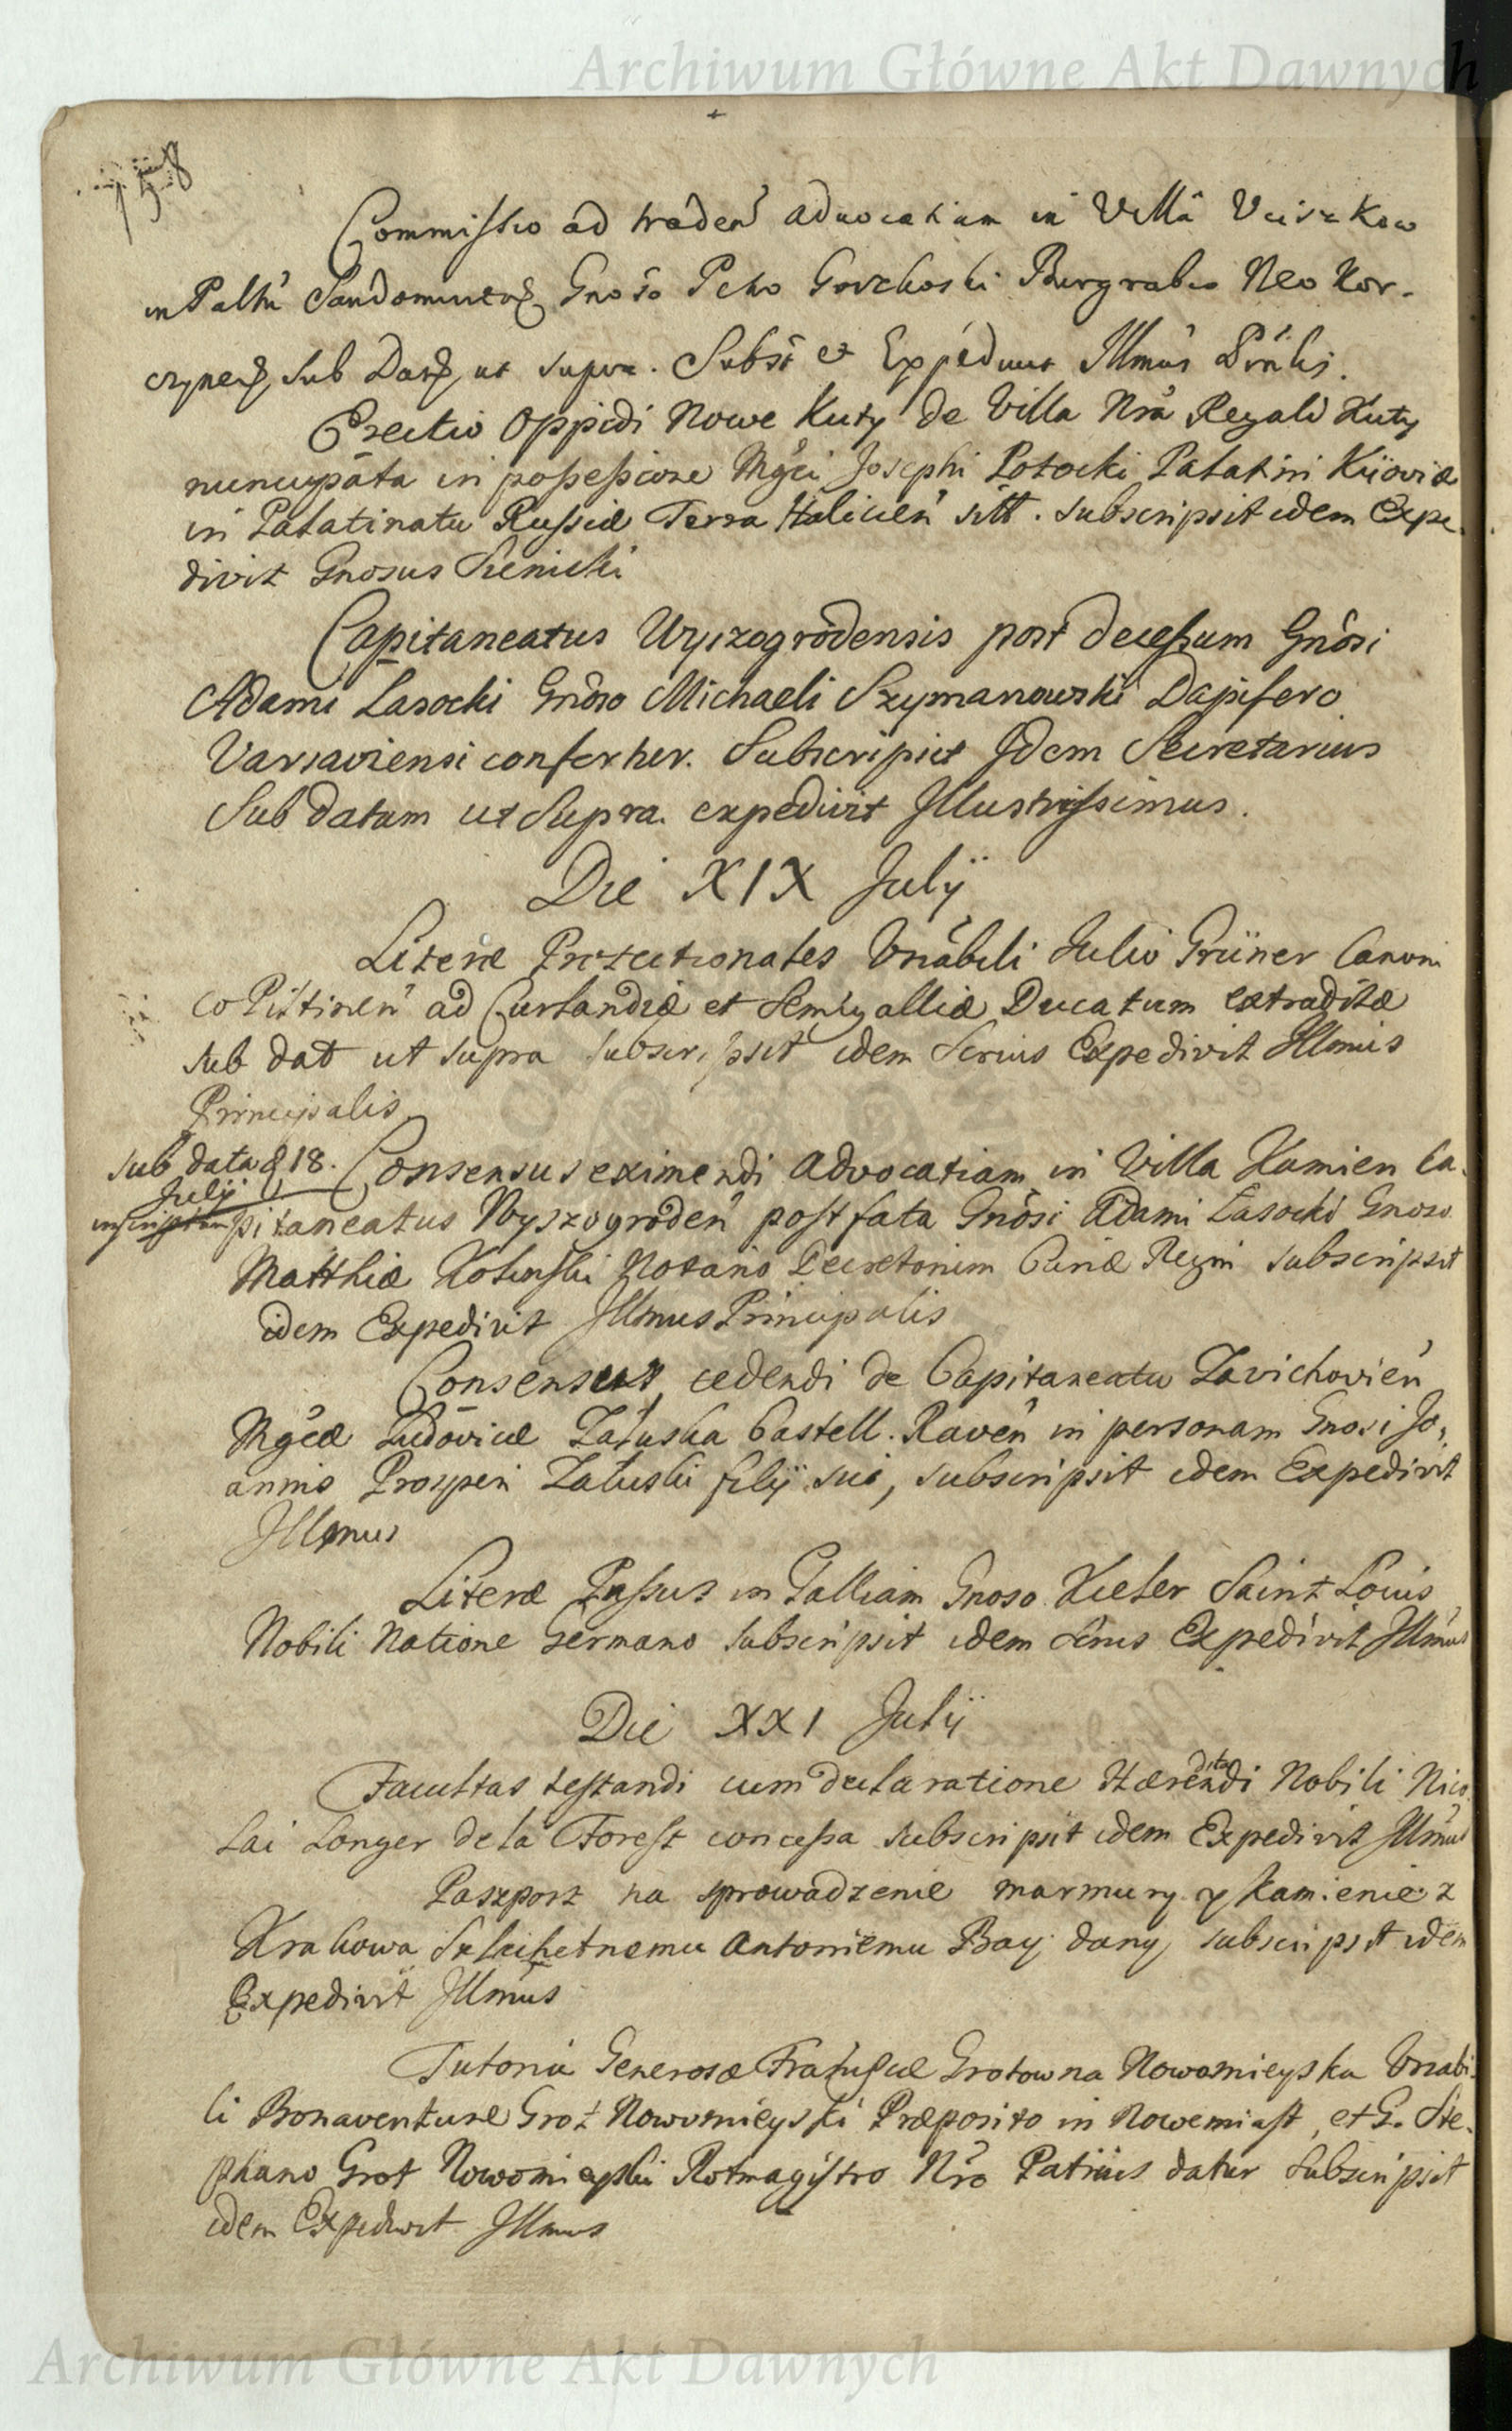 Archiwum Główne Akt Dawnych
158
Commissio ad traden advocatiam in Villa Uciszkow
in Palttu Sandomirien Gnoso Petro Gorzkoski Burgrabio Neo Kor-
czynen, sub Dat ut supra. Subst et Expedivit Illmus Prnlis.
Erectio Oppidi Nowe Kuty de Villa Nra Regali Kuty
nuncupata in possessione Mgci Josephi Potocki Palatini Kijoviæ
in Palatinatu Russiæ Terra Halicien sitt. subscripsit idem Expe-
divit Gnosus Sienicki
Capitaneatus Wyszogrodensis post decessum Gnosi
Adami Lasocki Gnoso Michaeli Szymanowski Dapifero
Varsaviensi confertur. Subscripsit Idem Secretarius
Sub datam ut Supra. expedivit Illustrissimus.
Die XIX Julij
Literæ Protectionales Vnabili Julio Grüner Canoni
co Piltinen ad Curlandiæ et Semigalliæ Ducatum extraditæ
sub dat ut supra subscripsit idem Scrius Expedivit Illmus
Principalis
sub data d 18.
Julij
inscriptum
Consensus eximendi advocatiam in Villa Kamien Ca-
pitaneatus Wyszogroden post fata Gnosi Adami Lasocki Gnoso
Matthiæ Notario Decretorum Curiæ Regni subscripsit
idem Expedivit Illmus Principalis
Consensus cedendi de Capitaneatu Zavichovien
Mgcæ Ludovicæ Załuska Castell. Raven in personam Gnosi Jo,
annis Prosperi Załuski filij sui, subscripsit idem Expedivit
Illmus
Literæ Passus in Galliam Gnoso Kieler Saint Louis
Nobili Natione Germano subscripsit idem Scrius Expedivit Illmus
Die XXI Julij
Facultas testandi cum declaratione Hærendi dita Nobili Nico
lai Longer de la Forest concessa subscripsit idem Expedivit Illmus
Paszport na sprowadzenie marmury y kamienie z
Krakowa Szlachetnemu Antoniemu Bay dany subscripsit idem
Expedivit Illmus
Tutoria Generosæ Grotowna Nowomieyska Vnabi-
li Bonaventuræ Grot Nowomieyski Præposito in Nowemiast, et G. Ste-
phano Grot Nowomieyski Rotmagistro Nro Patruis datur subscripsit
idem Expedivit Illmus
Archiwum Główne Akt Dawnych